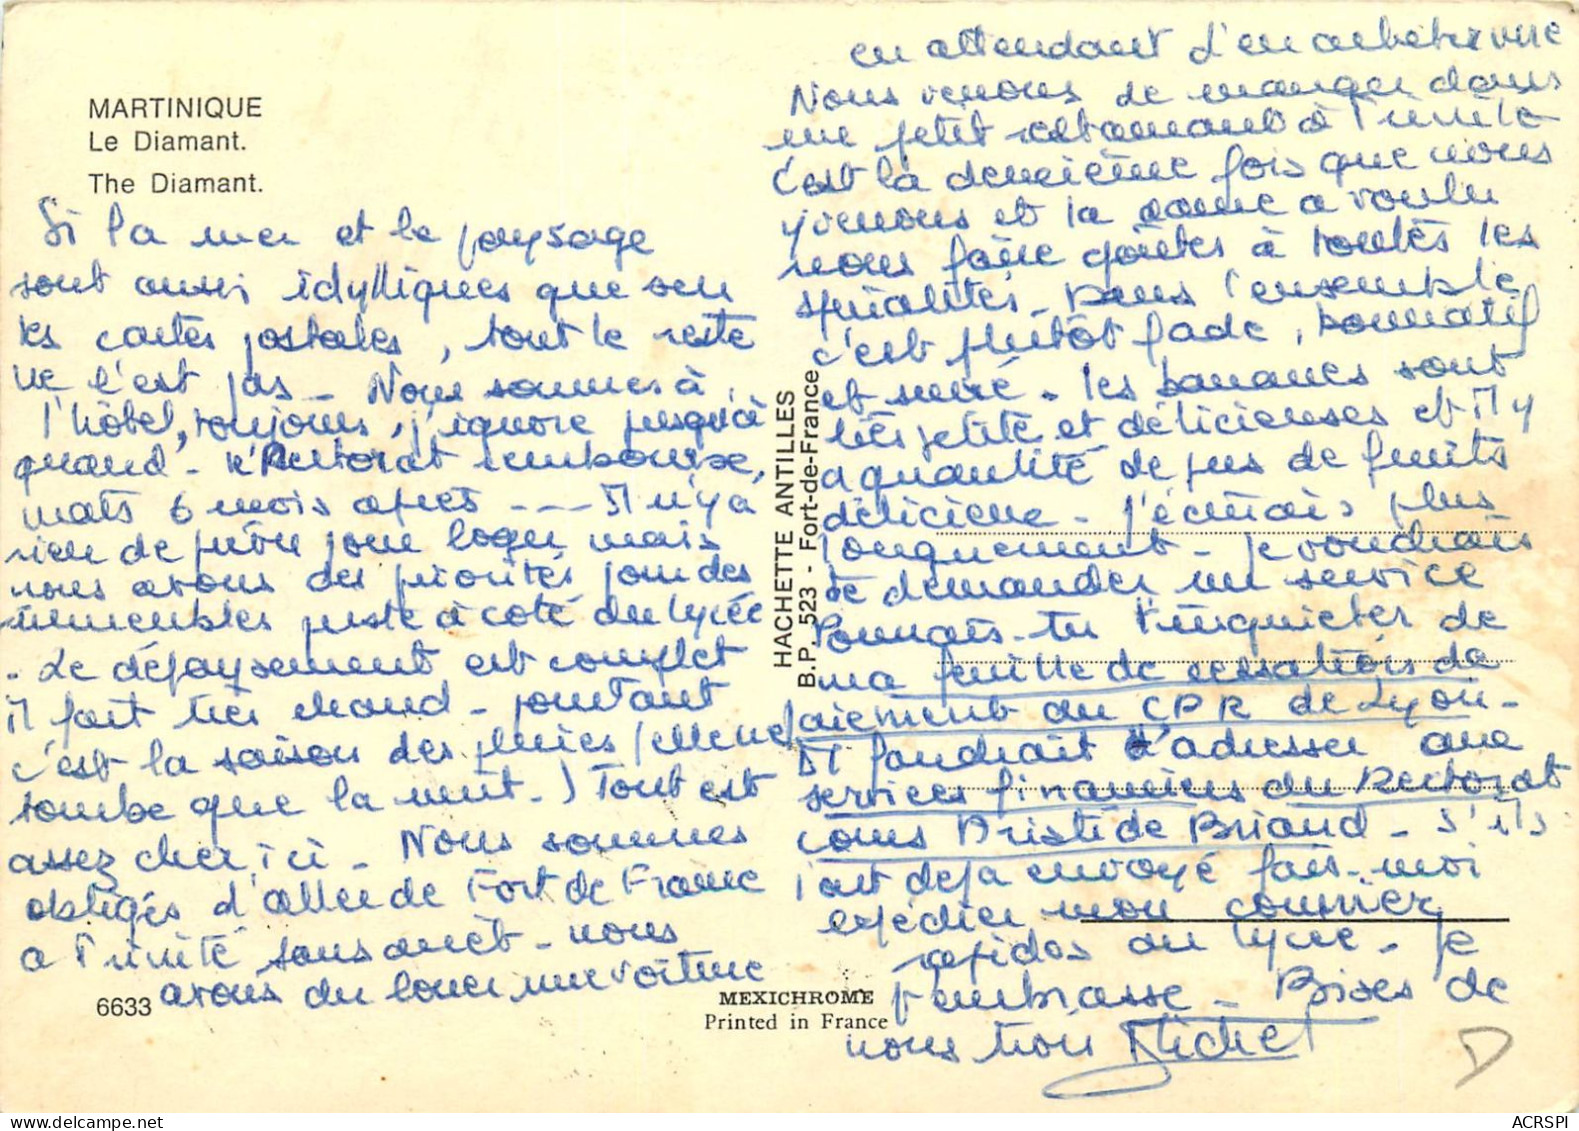 MARTINIQUE
Le Diamant.
The Diamant.
Si la mer et le paysage
sont aussi idylliques que sur
les cartes postales, tout le reste
ne l'est pas - Nous sommes à
l'hôtel, toujours, j'ignore jusqu'à
quand - le Rectorat rembourse,
mais 6 mois après --- Il n'y a
rien de prévu pour loger mais
nous avons des priorités pour des
immeubles juste à côté du lycée
- Le dépaysement est complet
il fait très chaud - pourtant
c'est la saison des pluies (elle ne
tombe que la nuit -) Tout est
assez cher ici - Nous sommes
obligés d'aller de Fort de France
a Trinité sans arrêt - nous
avons du louer une voiture
6633
HACHETTE ANTILLES
B.P. 523 - Fort-de-France
MEXICHROME
Printed in France
en attendant d'en acheter une
Nous venons de manger dans
un petit restaurant à Trinité
C'est la deuxième fois que nous
y venons et la dame a voulu
nous faire goûter à toutes les
spécialités - Dans l'ensemble
c'est plutôt fade, bourratif
et sucré - Les bananes sont
très petite et délicieuses et il y
a quantité de jus de fruits
délicieux - J'écrirais plus
longuement - Je voudrais
te demander un service
Pourrais-tu t'inquieter de
ma feuille de cessations de
paiement du CPR de Lyon -
Il faudrait t'adresser aux
services financiers du Rectorat
cours Aristide Briand - S'ils
l'ont deja envoyé fais-moi
expédier mon courrier
rapidos au lycee - Je
t'embrasse - Bises de
nous trois Michel
D
ACRSPI